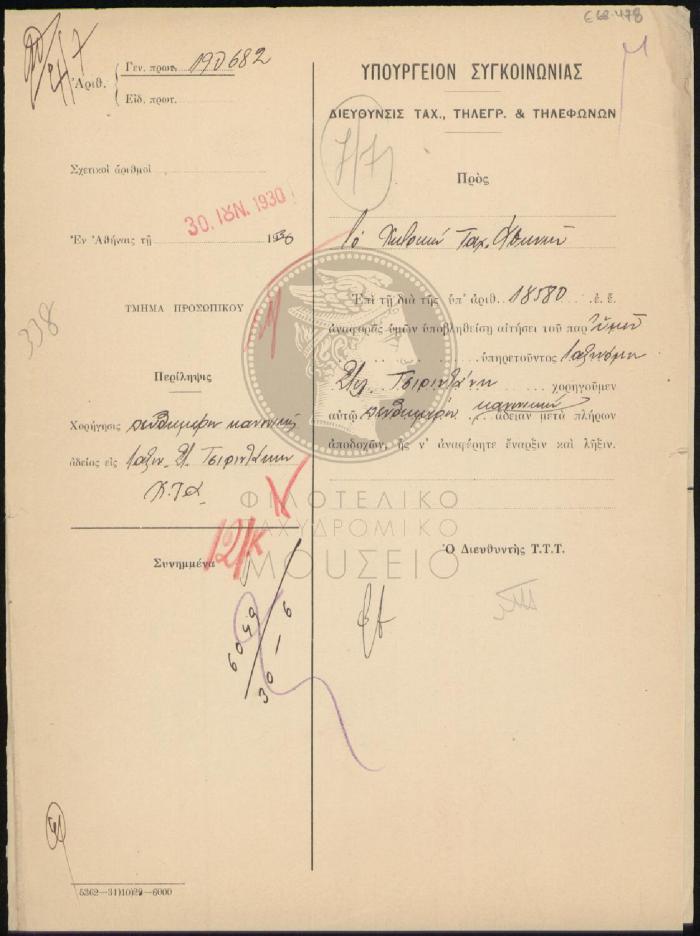 Ε68.478
Ἀριθ.
Γεν. πρωτ. 190682
Εἰδ. πρωτ.
Σχετικοὶ ἀριθμοὶ
30. ΙΟΥΝ. 1930
Ἐν Ἀθήναις τῇ 1930
338
ΤΜΗΜΑ ΠΡΟΣΩΠΙΚΟΥ
Περίληψις
Χορήγησις κανονικῆς
ἀδείας εἰς
Συνημμένα
12/κ
6049
30-6
5362—31)10)29—6000
ΥΠΟΥΡΓΕΙΟΝ ΣΥΓΚΟΙΝΩΝΙΑΣ
ΔΙΕΥΘΥΝΣΙΣ ΤΑΧ., ΤΗΛΕΓΡ. & ΤΗΛΕΦΩΝΩΝ
7/7
Πρὸς
Τὸ Κεντρικὸν Ταχ. Ἀθηνῶν
Ἐπὶ τῇ διὰ τῆς ὑπ' ἀριθ. 18580 ἐ. ἔ.
ἀναφορᾶς ὑμῶν ὑποβληθείσῃ αἰτήσει τοῦ παρ' ὑμῖν
ὑπηρετοῦντος
χορηγοῦμεν
αὐτῷ κανονικὴν ἄδειαν μετὰ πλήρων
ἀποδοχῶν, ἧς ν' ἀναφέρητε ἔναρξιν καὶ λῆξιν.
Ὁ Διευθυντὴς Τ.Τ.Τ.
ΦΙΛΟΤΕΛΙΚΟ
ΤΑΧΥΔΡΟΜΙΚΟ
ΜΟΥΣΕΙΟ